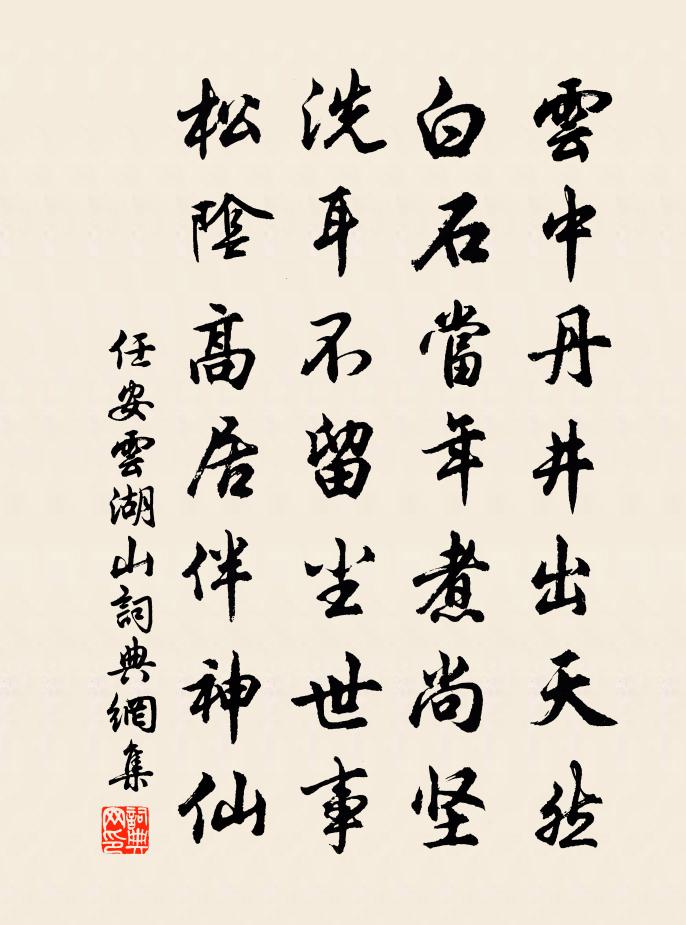 雲中丹井出天然
白石當年煮尚坚
洗耳不留尘世事
松陰高居伴神仙
任安雲湖山詞典網集
詞典網印